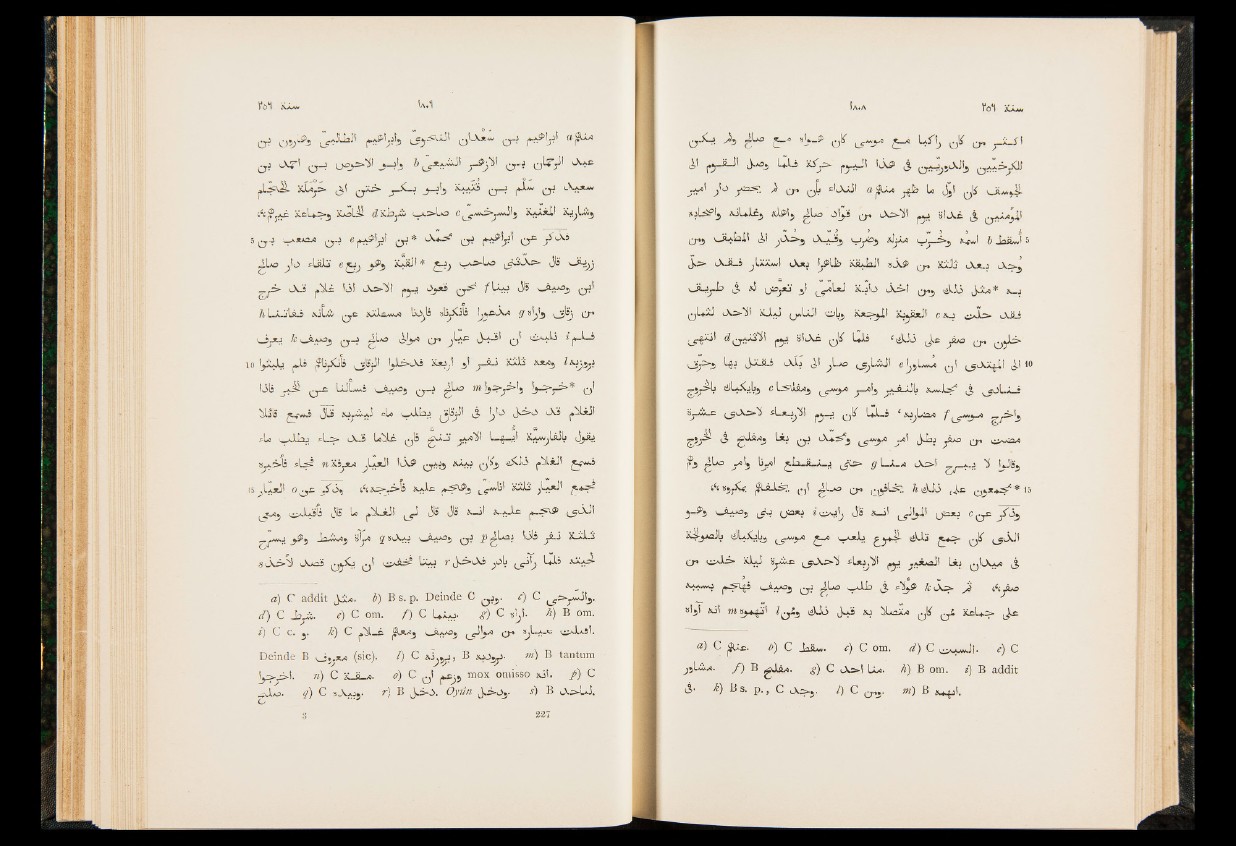 سنة ٢٥٦ ١٨٠٨
اكثر من كان راكبا مع موسى كان هواه مع صالح ولم يكن
للكرخيّين والدوريّين في هذا اليوم حركة فلمّا وصل القوم الى
الجوسف كان اوّل ما ظهر منهم a النداء بأن من لم يحضر دار امير
المؤمنين في غداة يوم الاحد من قوّاد صالح واهله وغلمانه واصحابه
5 أُسقط b اسمُه وخُرّب منزله وضُرب وقُيّد وحُدّر الى المُطبف ومن
وُجد بعد ثلثة من هذه الطبقة ظاهرًا بعد استتار فقد حلّ
به *مثل ذلك ومن اخذ دابّة لعامّىّ او تعرّض له في طريف
فقد حلّت به c العقوبة الموجعة وبات الناس ليلة الاحد لثمان
خلون من صفر على ذلك، فلما كان غداة يوم الاثنين d انتهى
10 الى المهتدى ان مُساورا e الشارى صار الى بَلَد فقتل بها وحرّق
فنادى في مجلسه بالنفير وامر موسى ومفلحا c وبايكباك بالخروج
واخرج موسى f مضاربه، فلما كان يوم الاربعاء لاحدى عشرة
مضت من صفر بطل امر موسى ومحمّد بن بغا ومفلح في الخروج
وقالوا لا يبرح احد منا g حتى ينقطع امرنا وامر صالح وهم
15 *مجمعون على ذلك h يخافون من صالح ان يخلفهم بمكروه،
وذُكر عن c بعض الموالى انه قال رايت i بعض بنى وصيف وهو
الذى كان جمع تلك الجموع يلعب مع موسى وبايكباك بالصوالجة
في ميدان بغا الصغير يوم الاربعاء لاحدى عشرة ليلة خلت من
صفر، ثم جدّ k هؤلاء في طلب صالح بن وصيف فهُجم بسببه
على جماعة مّن كان متّصلا به قبل ذلك ومّن l اتّهموه m انه آواه
a) C عنهم. b) C سقط. c) C om. d) C السبت. e) C
مشاور. f) B مفلح. g) C منا احد. h) B om. i) B addit
في. k) B s. p., C وجد. l) C ومن. m) B اتهمه.
١٨٠٩ سنة ٢٥٦
منهم a ابراهيم بن سَعْدان النحوىّ وابراهيم الطالبىّ وهرون بن
عبد الرحمان بن الازهر الشيعىّ b وابو الاحوص بن احمد بن
سعيد بن سَلْم بن قُتَيبة وابو بكر ختن ابى حَرْمَلة الحجّام
وشارية المغنّية والسرخسىّ c صاحب شرطة d الخاصّة وجماعة غيرهم،
5 فذكر عن ابراهيم بن محمّد *بن ابراهيم e بن مصعب بن
زريف قال حدّثنى صاحب ربع *القبّة وهو ربع e تلقاء دار صالح
ابن وصيف قال بينا f نحن قعود يوم الاحد اذا غلام قد خرج
من زقاق واراه g مذعورا فأنكرناه فاردنا مسئلته عن شأنه ففاتنا h
فلم i نلبث ان اقبل عيّار من موالى صالح بن وصيف k يعرف
10 بروزبه l ومعه ثلثة نفر او اربعة فدخلوا الزقاق فأنكرناهم فلم يلبثوا
ان *خرجوا واخرجوا m صالح بن وصيف فسألنا عن الخبر فاذا
الغلام قد دخل دارا في الزقاق يطلب ماء ليشربه قال فسمع قائلا
يقول بالفارسيّة ايّها الامير تنحَّ فان غلاما قد جاء يطلب ماء
فسمع الغلام ذلك وكان بينه وبين هذا العيّار معرفة n فجاء فأخبره
15 فجمع العيّار ثلثة اناسىّ وهجم عليه فأخرجه، وذُكر عن o العيّار
الذى هجم عليه انه قال قال لى الغلام ما قال فأقبلت ومعى
ثلثة نفر فاذا بصالح p بن وصيف بيده q مرآة ومشط وهو يسرّح
لحيته فلما رآنى بادر فدخل r بيتا فخفت ان يكون قصد لأخذ s
a) C addit مثل. b) B s. p. Deinde C وبن. c) C والسرحى.
d) C شرط. e) C om. f) C بينما. g) C اراه. h) B om.
i) C c. و. k) C اقبلت عياره من موالى وصيف ومعهم غلام.
Deinde B معروف (sic). l) C بروزنه, B برودبه. m) B tantum
اخرجوا. n) C نقفة. o) C وزعم ان mox omisso انه. p) C
صلح. q) C وبيده. r) B دخل. Oyûn ودخل. s) B لياخذ.
3 227